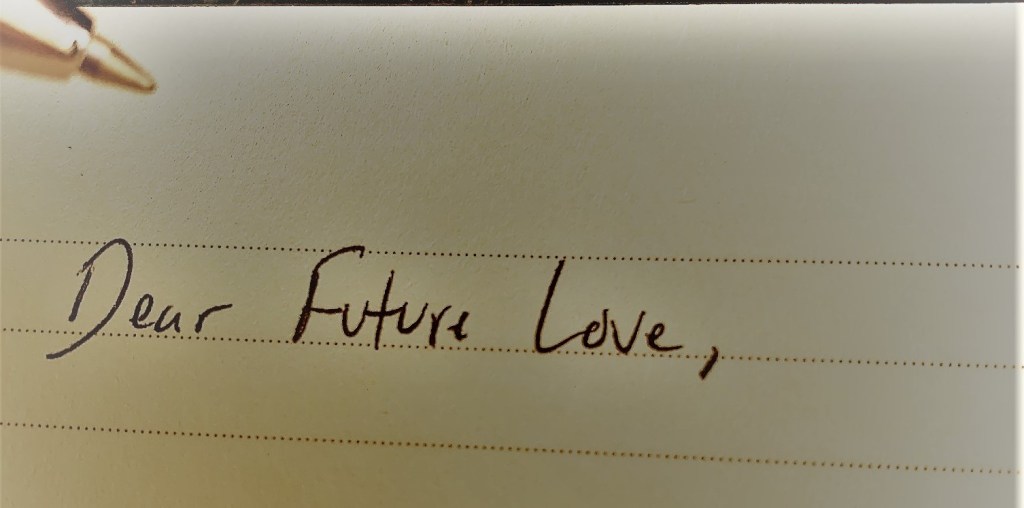 Dear Future Love,